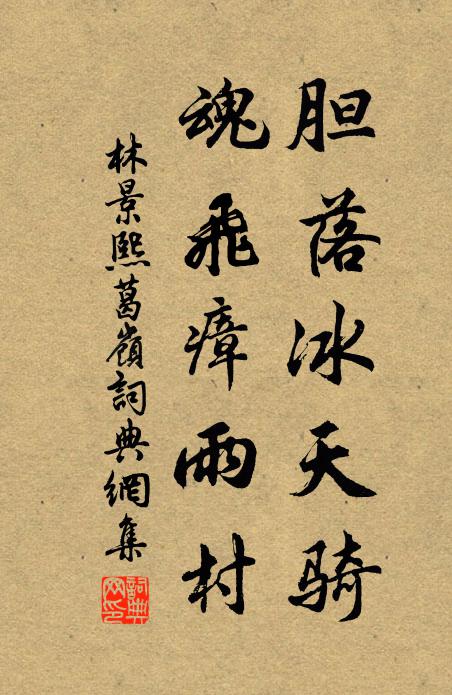 胆落冰天骑
魂飛瘴雨村
林景熙葛嶺詞典網集
詞典網印